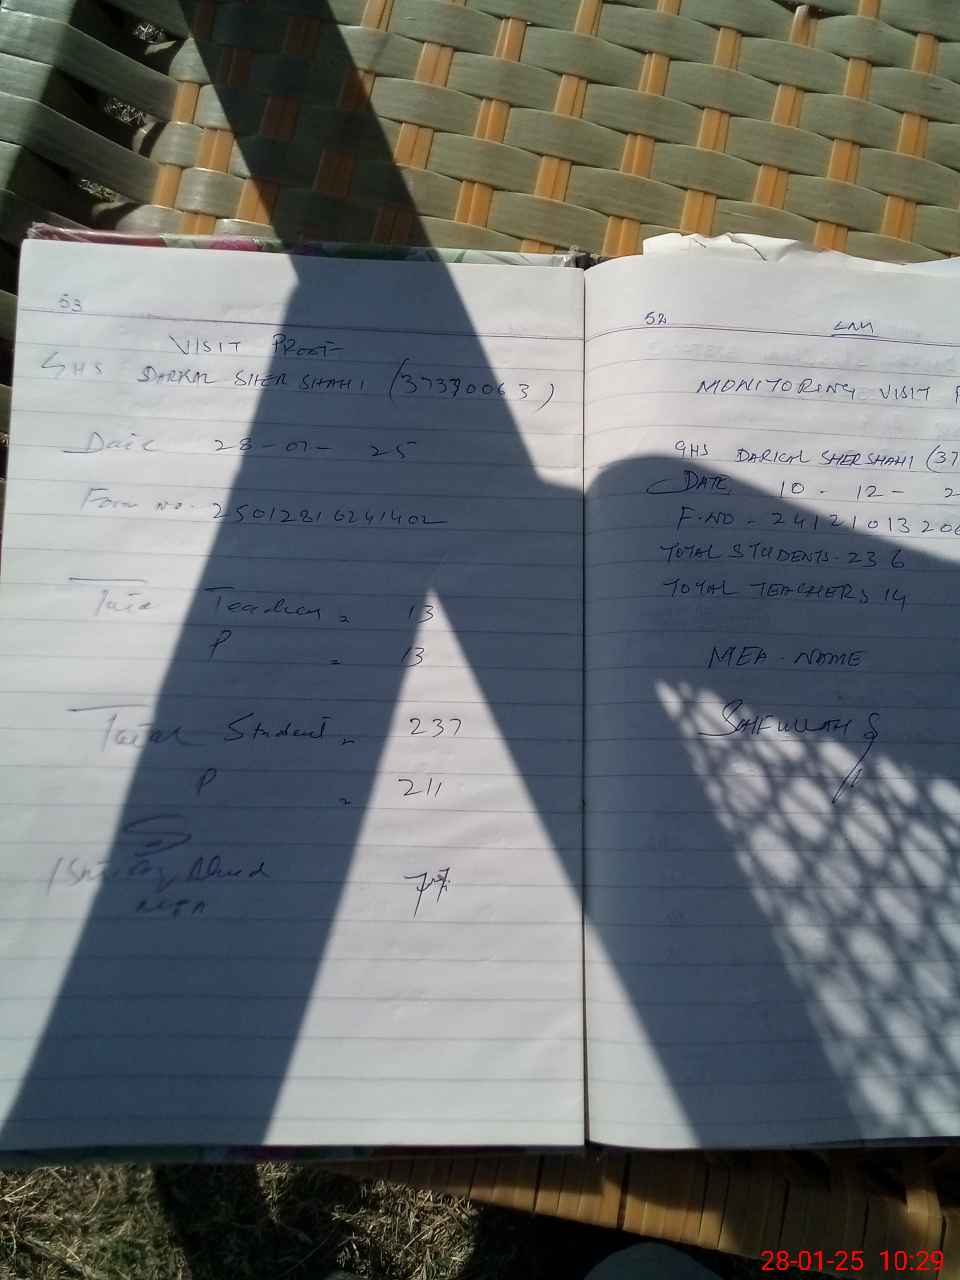 53
VISIT PROOF
GHS DARKAL SHER SHAHI (37330063)
Date 28-01-25
Form no. 25012816241402
Total Teacher = 13
P = 13
Total Student = 237
P = 211
Ahmed
MEA
52
MONITORING VISIT
GHS DARKAL SHER SHAHI (37
DATE 10-12-2
F.NO - 2412101320
TOTAL STUDENTS - 236
TOTAL TEACHERS 14
MEA - NAME
SAIFULLAH
28-01-25 10:29